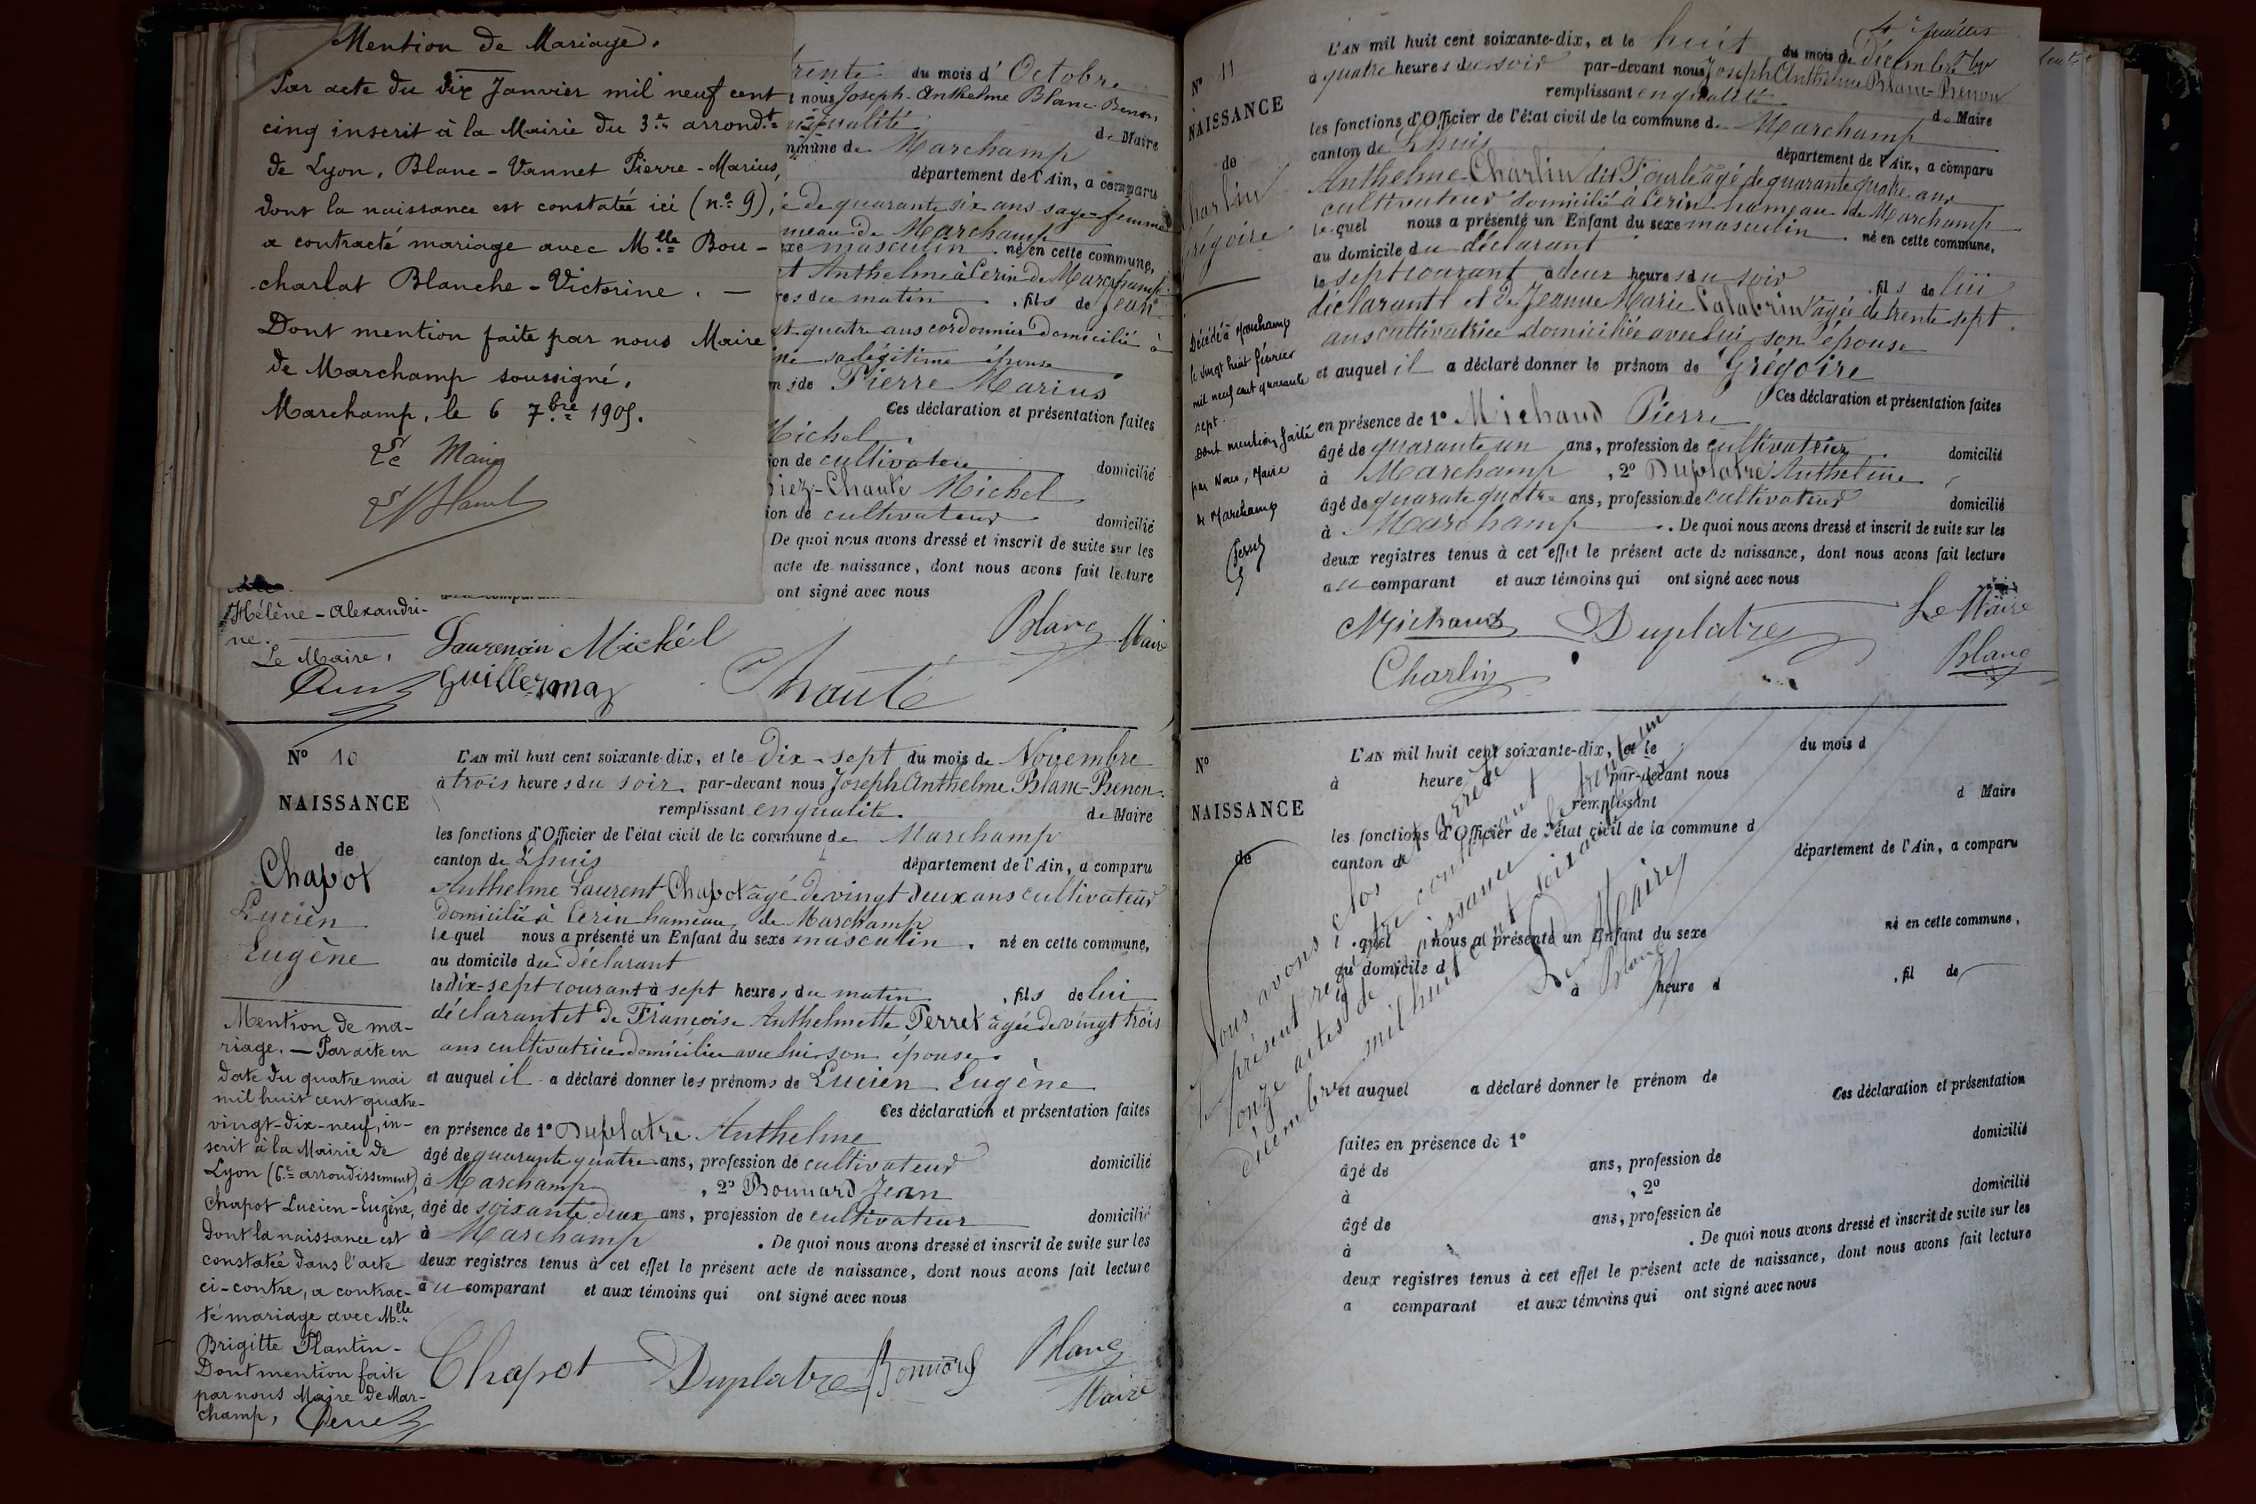 Mention de Mariage.
Par acte du dix Janvier mil neuf cent
cinq inscrit à la Mairie du 3e arrondt
de Lyon, Blanc-Vannet Pierre-Marius,
dont la naissance est constatée ici (no 9),
a contracté mariage avec Mlle Bou-
charlat Blanche-Victorine. —
Dont mention faite par nous Maire
de Marchamp soussigné.
Marchamp, le 6 7bre 1905.
Le Maire
du mois d'Octobre
nous Joseph-Anthelme Blanc-Benon
qualité de Maire
de Marchamp
département de l'Ain, a comparu
de quarante six ans sage-femme
de Marchamp
masculin né en cette commune,
Anthelme à Cerin de Marchamp
du matin, fils de Jean
quatre ans cordonnier domicilié à
sa légitime épouse
de Pierre Marius
Ces déclaration et présentation faites
Michel
de cultivateur domicilié
Chaule Michel
de cultivateur domicilié
De quoi nous avons dressé et inscrit de suite sur les
acte de naissance, dont nous avons fait lecture
ont signé avec nous
Hélène-Alexandri-
ne.
Le Maire,
Laurencin Michel
Blanc Maire
Guillermaz
Chaulé
No 10
NAISSANCE
de
Chapot
Lucien
Eugène
Mention de ma-
riage. — Par acte en
date du quatre mai
mil huit cent quatre-
vingt-dix-neuf, in-
scrit à la Mairie de
Lyon (6e arrondissement),
Chapot Lucien-Eugène,
dont la naissance est
constatée dans l'acte
ci-contre, a contrac-
té mariage avec Mlle
Brigitte Plantin-
Dont mention faite
par nous Maire de Mar-
champ,
L'AN mil huit cent soixante-dix, et le dix-sept du mois de Novembre
à trois heures du soir, par-devant nous Joseph Anthelme Blanc-Benon
remplissant en qualité de Maire
les fonctions d'Officier de l'état civil de la commune de Marchamp
canton de Lhuis département de l'Ain, a comparu
Anthelme Laurent Chapot âgé de vingt deux ans cultivateur
domicilié à Cerin hameau de Marchamp
lequel nous a présenté un Enfant du sexe masculin, né en cette commune,
au domicile du déclarant
le dix-sept courant à sept heures du matin, fils de lui
déclarant et de Françoise Anthelmette Perret âgée de vingt trois
ans cultivatrice domiciliée avec lui son épouse.
et auquel il a déclaré donner les prénoms de Lucien Eugène
Ces déclaration et présentation faites
en présence de 1o Duplatre Anthelme
âgé de quarante quatre ans, profession de cultivateur domicilié
à Marchamp, 2o Bonnard Jean
âgé de soixante deux ans, profession de cultivateur domicilié
à Marchamp. De quoi nous avons dressé et inscrit de suite sur les
deux registres tenus à cet effet le présent acte de naissance, dont nous avons fait lecture
au comparant et aux témoins qui ont signé avec nous
Chapot Duplatre Bonnard Blanc
Maire
4e feuillet
No 11
NAISSANCE
de
Charlin
Grégoire
Décédé à Marchamp
le vingt huit février
mil neuf cent quarante
sept.
Dont mention faite
par Nous, Maire
de Marchamp
L'AN mil huit cent soixante-dix, et le huit du mois de décembre
à quatre heures du soir par-devant nous Joseph Anthelme Blanc-Benon
remplissant en qualité de Maire
les fonctions d'Officier de l'état civil de la commune de Marchamp
canton de Lhuis département de l'Ain, a comparu
Anthelme Charlin dit Fourle âgé de quarante quatre ans
cultivateur domicilié à Cerin hameau de Marchamp
lequel nous a présenté un Enfant du sexe masculin né en cette commune,
au domicile du déclarant
le sept courant à deux heures du soir, fils de lui
déclarant et de Jeanne Marie Calabrin âgée de trente sept
ans cultivatrice domiciliée avec lui son épouse
et auquel il a déclaré donner le prénom de Grégoire
Ces déclaration et présentation faites
en présence de 1o Michaud Pierre
âgé de quarante un ans, profession de cultivateur domicilié
à Marchamp, 2o Duplatre Anthelme
âgé de quarate quatre ans, profession de cultivateur domicilié
à Marchamp. De quoi nous avons dressé et inscrit de suite sur les
deux registres tenus à cet effet le présent acte de naissance, dont nous avons fait lecture
au comparant et aux témoins qui ont signé avec nous
Michaud Duplatre Le Maire
Charlin Blanc
No
NAISSANCE
de
L'AN mil huit cent soixante-dix, et le du mois d
à heure d par-devant nous
remplissant d Maire
les fonctions d'Officier de l'état civil de la commune d
canton de département de l'Ain, a comparu
l quel nous a présenté un Enfant du sexe né en cette commune,
au domicile d
le à heure d, fil de
et auquel a déclaré donner le prénom de
Ces déclaration et présentation
faites en présence de 1o
âgé de ans, profession de domicilié
à, 2o
âgé de ans, profession de domicilié
à. De quoi nous avons dressé et inscrit de suite sur les
deux registres tenus à cet effet le présent acte de naissance, dont nous avons fait lecture
a comparant et aux témoins qui ont signé avec nous
Nous avons clos et arrêté
le présent registre contenant
onze actes de naissance le trente un
décembre mil huit cent soixante dix
Le Maire
Blanc